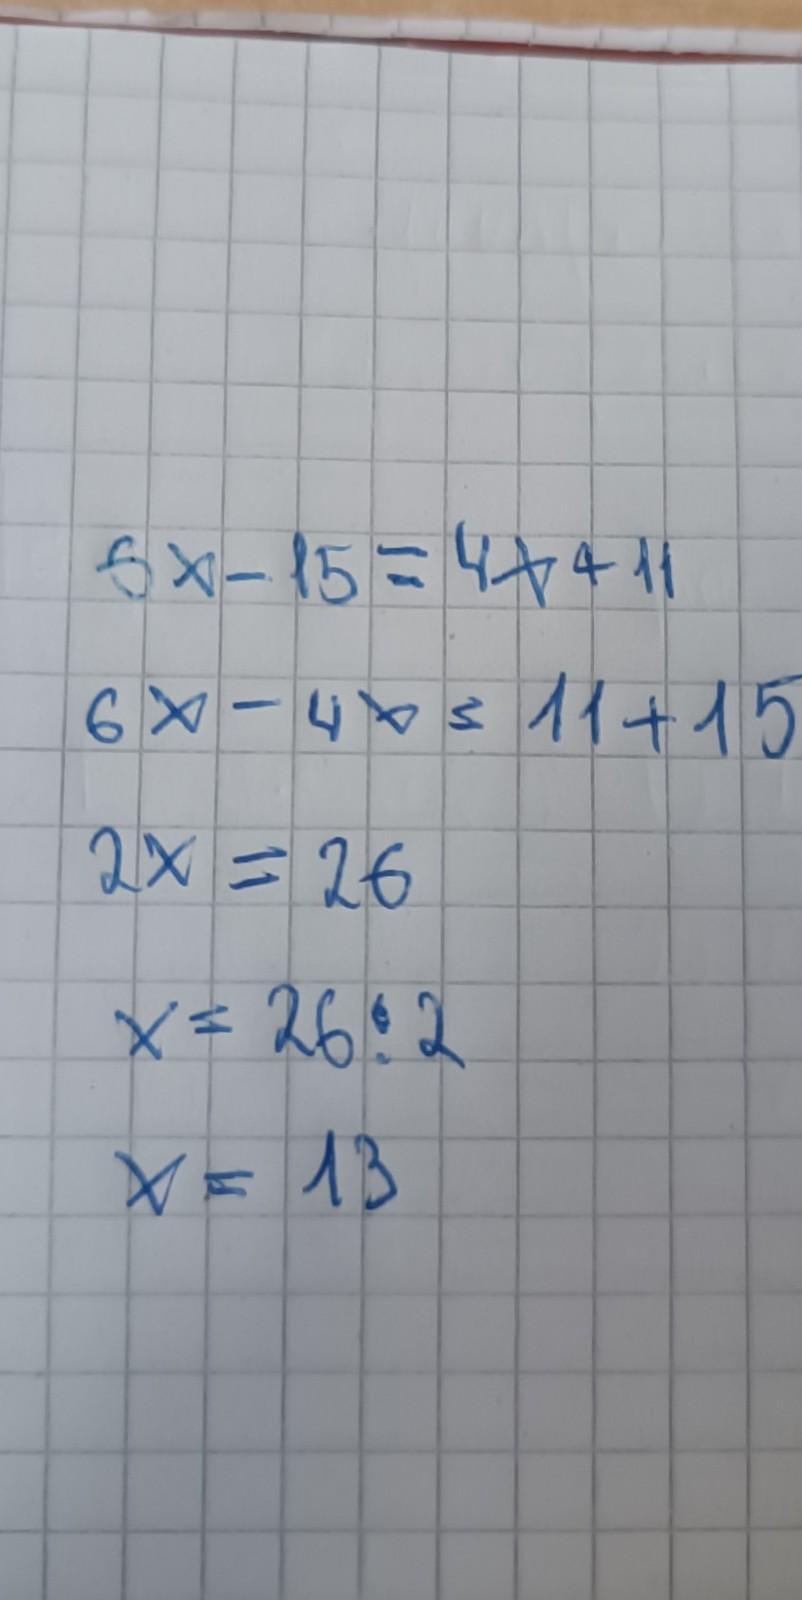 6x - 15 = 4x + 11
6x - 4x = 11 + 15
2x = 26
x = 26 : 2
x = 13